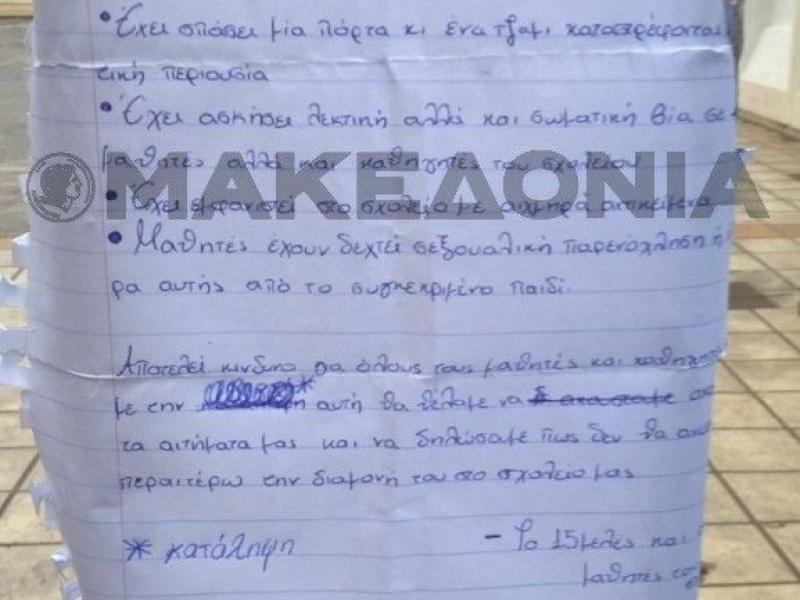 • Έχει σπάσει μία πόρτα κι ένα τζάμι καταστρέφοντας
τική περιουσία
• Έχει ασκήσει λεκτική αλλά και σωματική βία σε
μαθητές αλλά και καθηγητές του σχολείου
ΜΑΚΕΔΟΝΙΑ
• Έχει εμφανιστεί στο σχολείο με αιχμηρά αντικείμενα
• Μαθητές έχουν δεχτεί σεξουαλική παρενόχληση ή
ρα αυτής από το συγκεκριμένο παιδί.
Αποτελεί κίνδυνο για όλους τους μαθητές και καθηγητ
με την * αυτή θα θέλαμε να
τα αιτήματα μας και να δηλώσαμε πως δεν θα ανε
περαιτέρω την διαμονή του στο σχολείο μας
* κατάληψη
- Το 15μελές και
μαθητές το